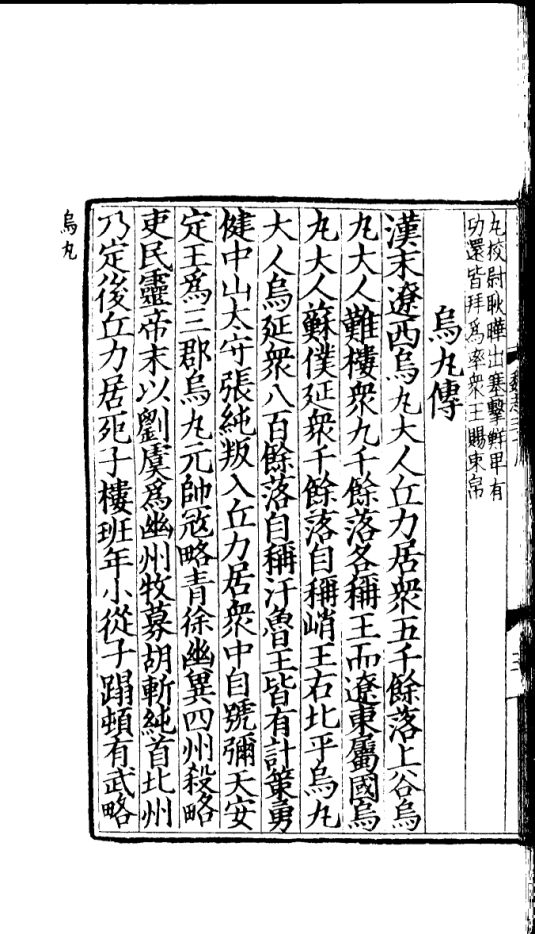 丸校尉耿曄出塞擊鮮卑有
功還皆拜爲率衆王賜束帛
烏丸傳
漢末遼西烏丸大人丘力居衆五千餘落上谷烏
丸大人難樓衆九千餘落各稱王而遼東屬國烏
丸大人蘇僕延衆千餘落自稱峭王右北平烏丸
大人烏延衆八百餘落自稱汗魯王皆有計策勇
健中山太守張純叛入丘力居衆中自號彌天安
定王爲三郡烏丸元帥寇略青徐幽冀四州殺略
吏民靈帝末以劉虞爲幽州牧募胡斬純首北州
乃定後丘力居死子樓班年小從子蹋頓有武略
烏丸